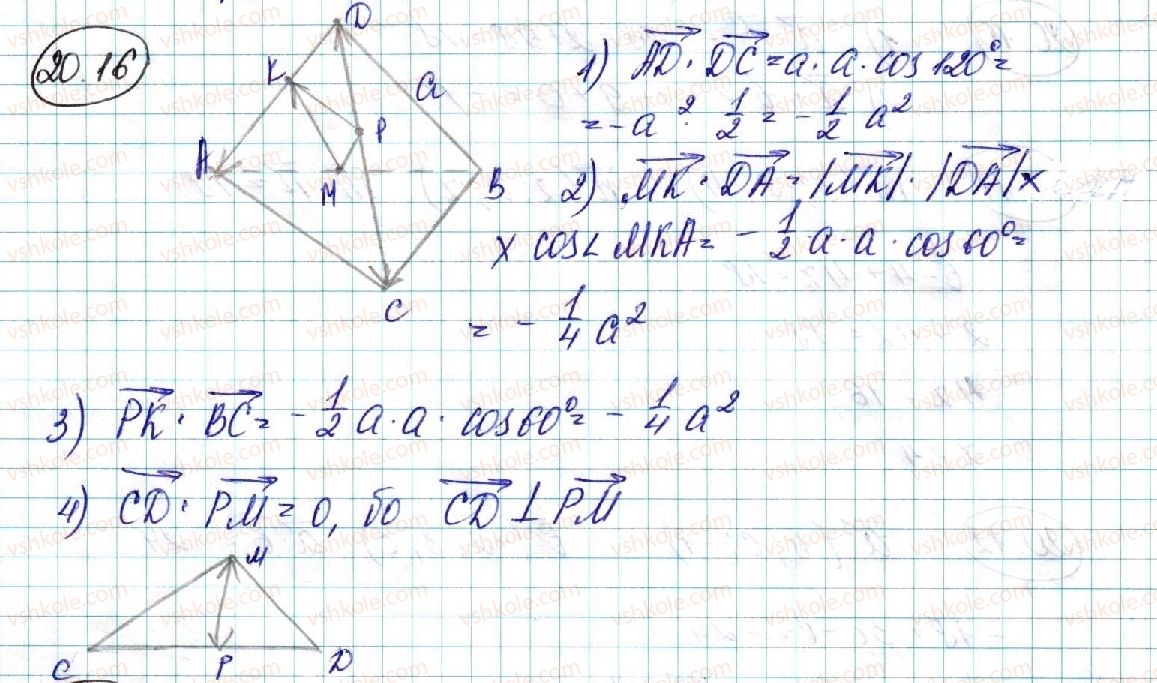 20.16
D
K
a
P
A
M
B
C
1) AD · DC = a · a · cos 120° =
= -a² · 1/2 = - 1/2 a²
2) MK · DA = |MK| · |DA| ×
× cos∠MKA = - 1/2 a · a · cos60° =
= - 1/4 a²
3) PK · BC = - 1/2 a · a · cos60° = - 1/4 a²
4) CD · PM = 0, бо CD ⊥ PM
M
C P D
vshkole.com